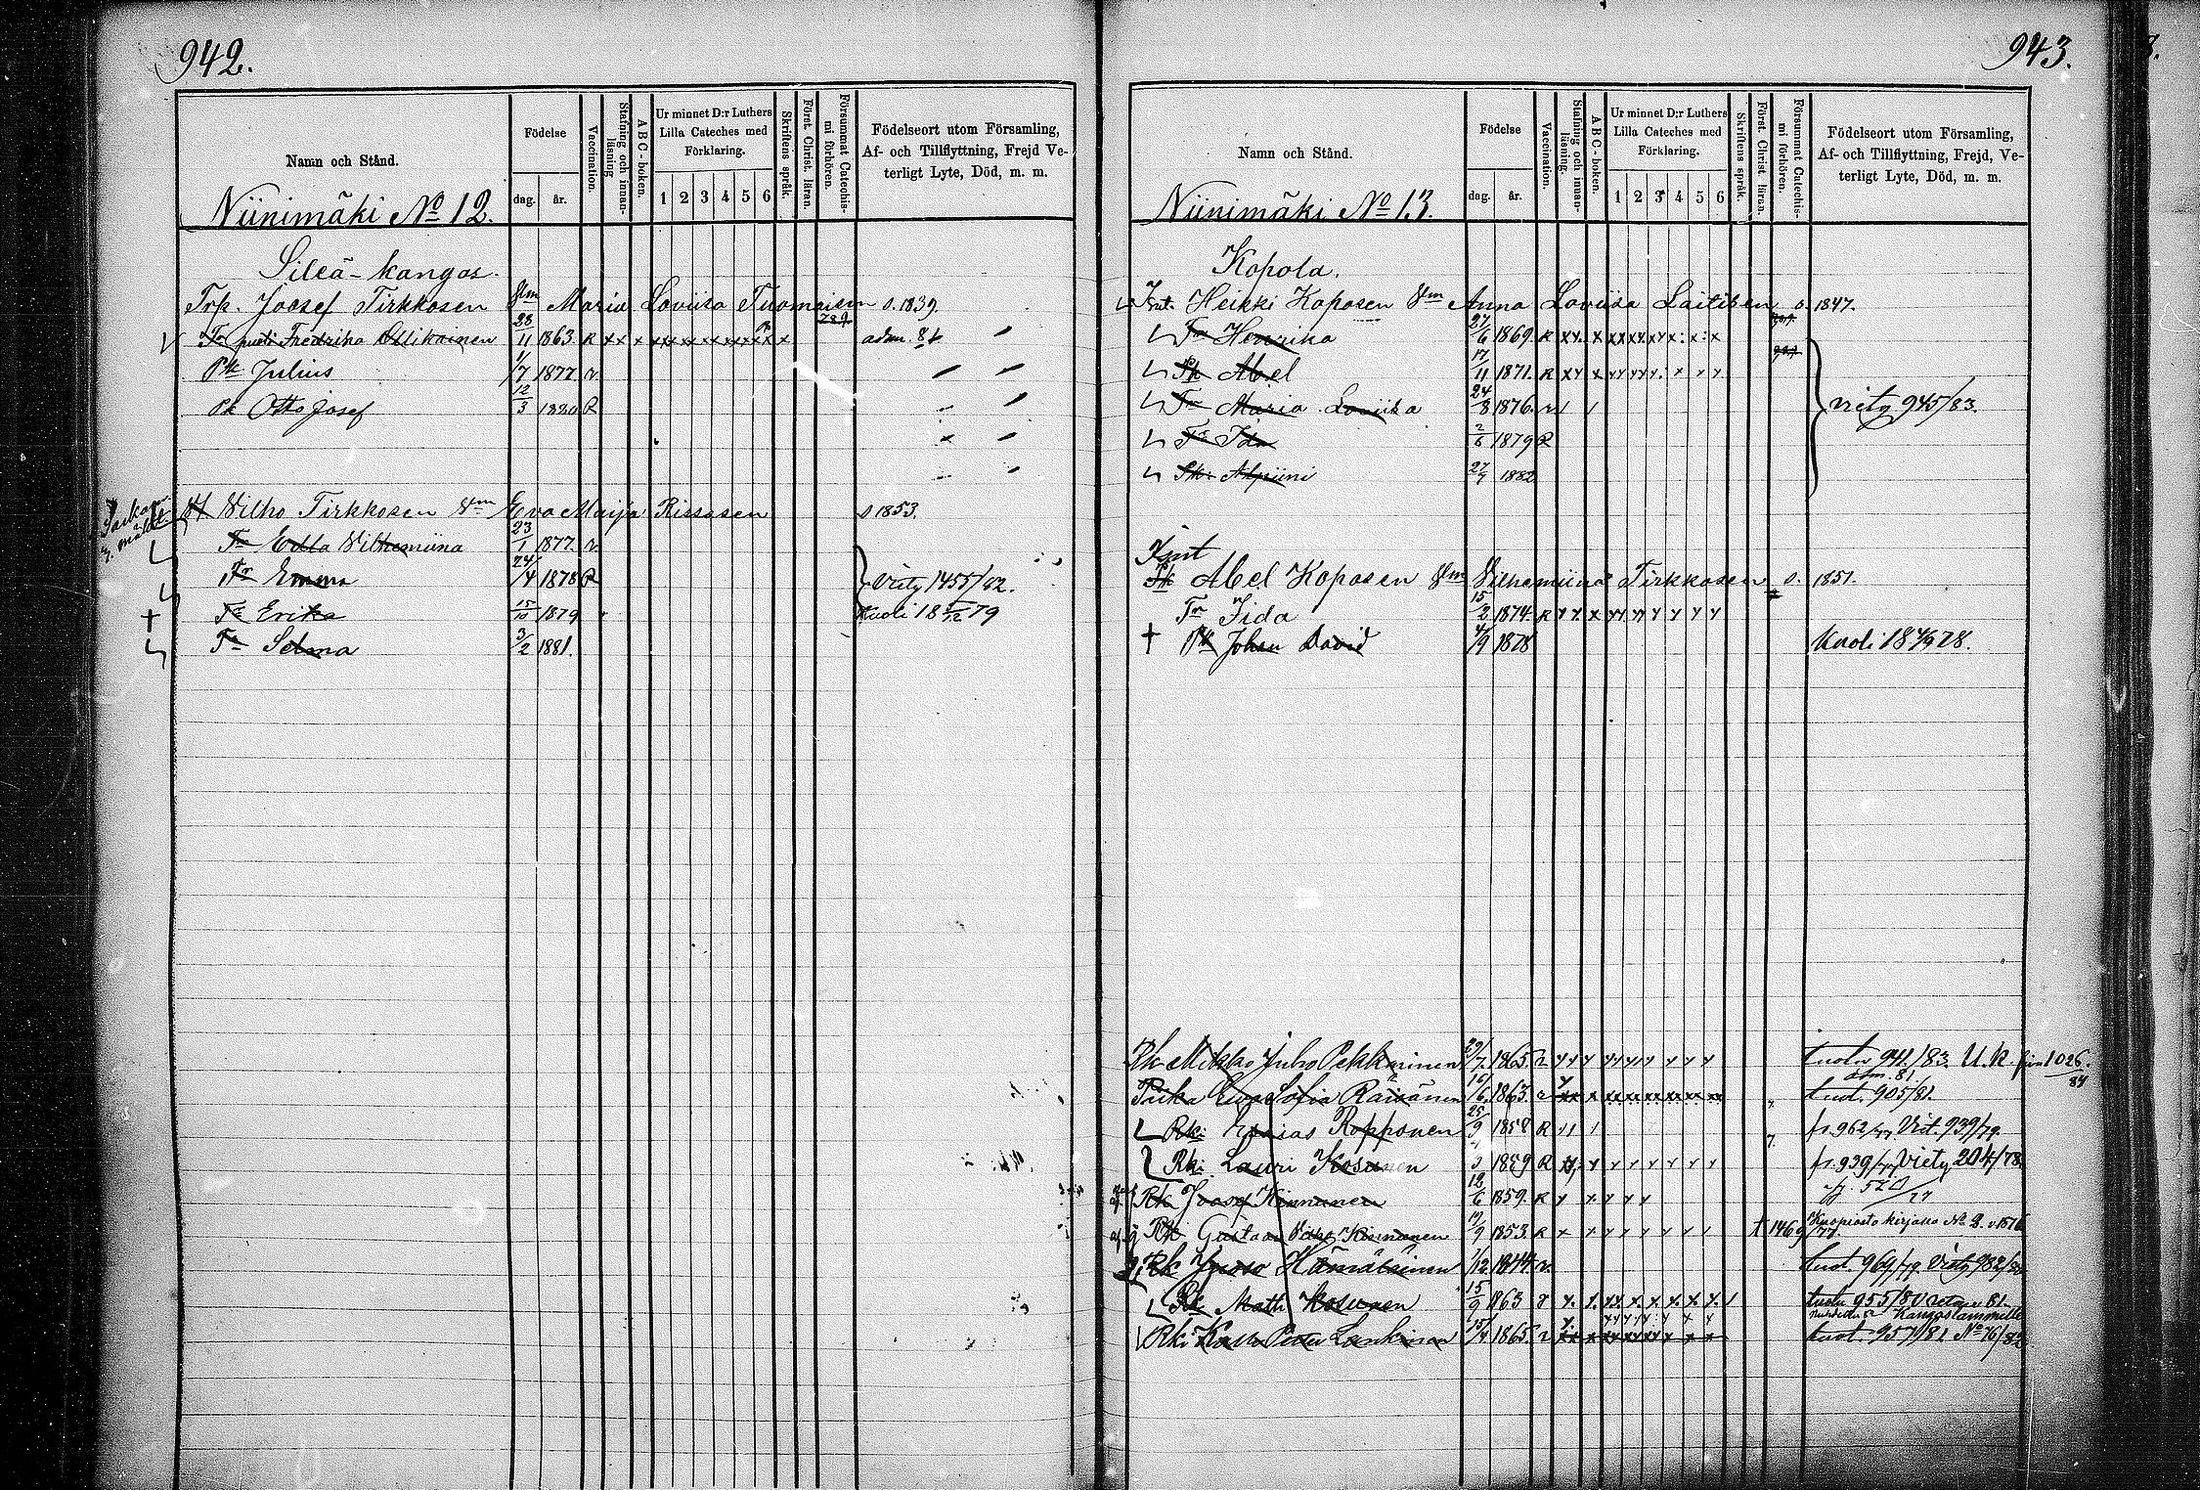 942.
Namn och Stånd.
Födelse
dag. år.
Vaccination.
Stafning och innan-läsning
A B C-boken.
Ur minnet D:r Luthers Lilla Cateches med Förklaring.
1 2 3 4 5 6
Skriftens språk.
Först. Christ. läran.
Försummat Catechis-mi förhören.
Födelseort utom Församling, Af- och Tillflyttning, Frejd Ve-terligt Lyte, Död, m. m.
Niinimäki No 12.
Sileä-kangas.
Trp. Joosef Tirkkosen Vlm Maria Loviisa Tuomaisen s. 1839.
Tr puoli Fredrika Ollikainen 28/11 1863. R
Pk Julius 1/7 1877 v
Pk Otto Josef 12/3 1880 R
Vilho Tirkkosen Vm Eva Maija Rissasen s 1853.
Tr Edla Vilhemiina 23/1 1877. v
Tr Emma 24/4 1878 R Viety 1455/82.
Tr Erika 15/10 1879 Kuoli 18 /12 79
Tr Selma 3/2 1881.
943.
Namn och Stånd.
Födelse
dag. år.
Vaccination.
Stafning och innan-läsning.
A B C-boken.
Ur minnet D:r Luthers Lilla Cateches med Förklaring.
1 2 3 4 5 6
Skriftens språk.
Först. Christ. läran.
Försummat Catechis-mi förhören.
Födelseort utom Församling, Af- och Tillflyttning, Frejd, Ve-terligt Lyte, Död, m. m.
Niinimäki No 13.
Kopola.
Heikki Koposen Vlm Anna Loviisa Laitisen s. 1847.
Tr Henrika 27/6 1869. R
Pk Abel 17/11 1871. R
Tr Maria Loviika 24/8 1876. v viety 945/83.
Tr Ida 2/6 1879 R
Pk Alpiini 27/7 1882
Abel Koposen Vlm Vilhemiina Tirkkosen s. 1851.
Tr Iida 15/2 1874. R
Pk Johan David 4/9 1878 Kuoli 18 78.
Rk Mikko Juho Pekkarinen 29/7. 1865. tuotu 941/83. U.K. 1026/84
adm. 81.
Piika Eva Sofia Räisänen 16/6. 1863. tuot. 905/81.
Rk: Esaias Ropponen 25/9 1858 R fr. 962/77 Viet. 939/79.
Rk: Lauri Kosunen 1859 R fr. 939/77 Viety 204/78.
Rk Joosef Kinnunen 12/6 1859. R
Rk Gustaav Vilho Kinnunen 1853. R 1469/77.
Rk Hämäläinen 1/12 1844. v. tuot. 969/79. Viety 982/80
Rk Matti Kosunen 15/9 1863 tuotu 955/80 81.
Kangaslammille
Rk: Petter Lankinen 15/4 1865. v tuot. 957/81 No 76/82